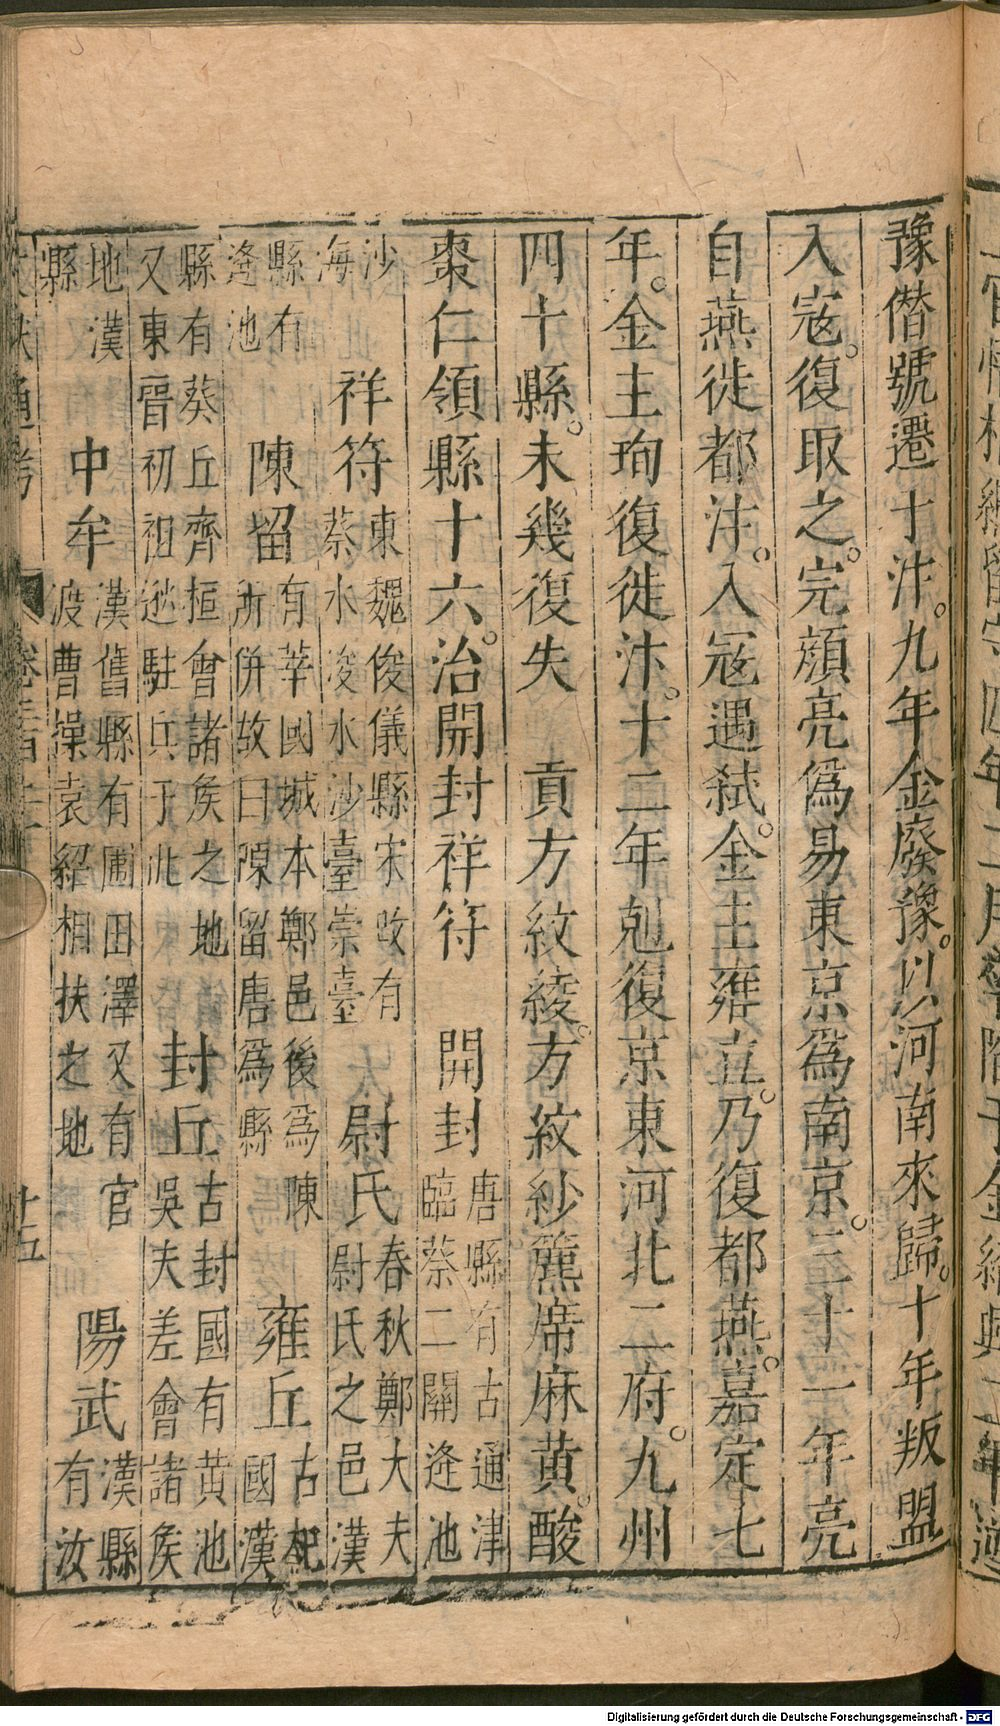 豫僭號遷于汴。九年金廢豫。以河南來歸。十年叛盟
入寇。復取之。完顏亮爲易東京爲南京。三十一年亮
自燕徙都汴。入冦遇弑。金主雍立。乃復都燕。嘉定七
年。金主珣復徙汴。十二年剋復京東河北二府。九州
四十縣。未幾復失　貢方紋綾。方紋紗藨席麻黄。酸
棗仁領縣十六。治開封祥符　開封　唐縣有古通津臨蔡二關逄池
沙海　祥符　東魏俊儀縣宋改有蔡水浚水沙臺崇臺　尉氏　春秋鄭大夫尉氏之邑漢
縣有逢池　陳留　有莘國城本鄭邑後爲陳所併故曰陳留唐爲縣　雍丘　古杞國漢
縣有葵丘齊桓會諸侯之地又東晉初祖逖駐兵于此　封丘　古封國有黄池吳夫差會諸侯
地漢縣　中牟　漢舊縣有圃田澤又有官渡曹操袁紹相扶之地　陽武　漢縣有汝
通考　卷三百二十　十五
Digitalisierung gefördert durch die Deutsche Forschungsgemeinschaft - DFG